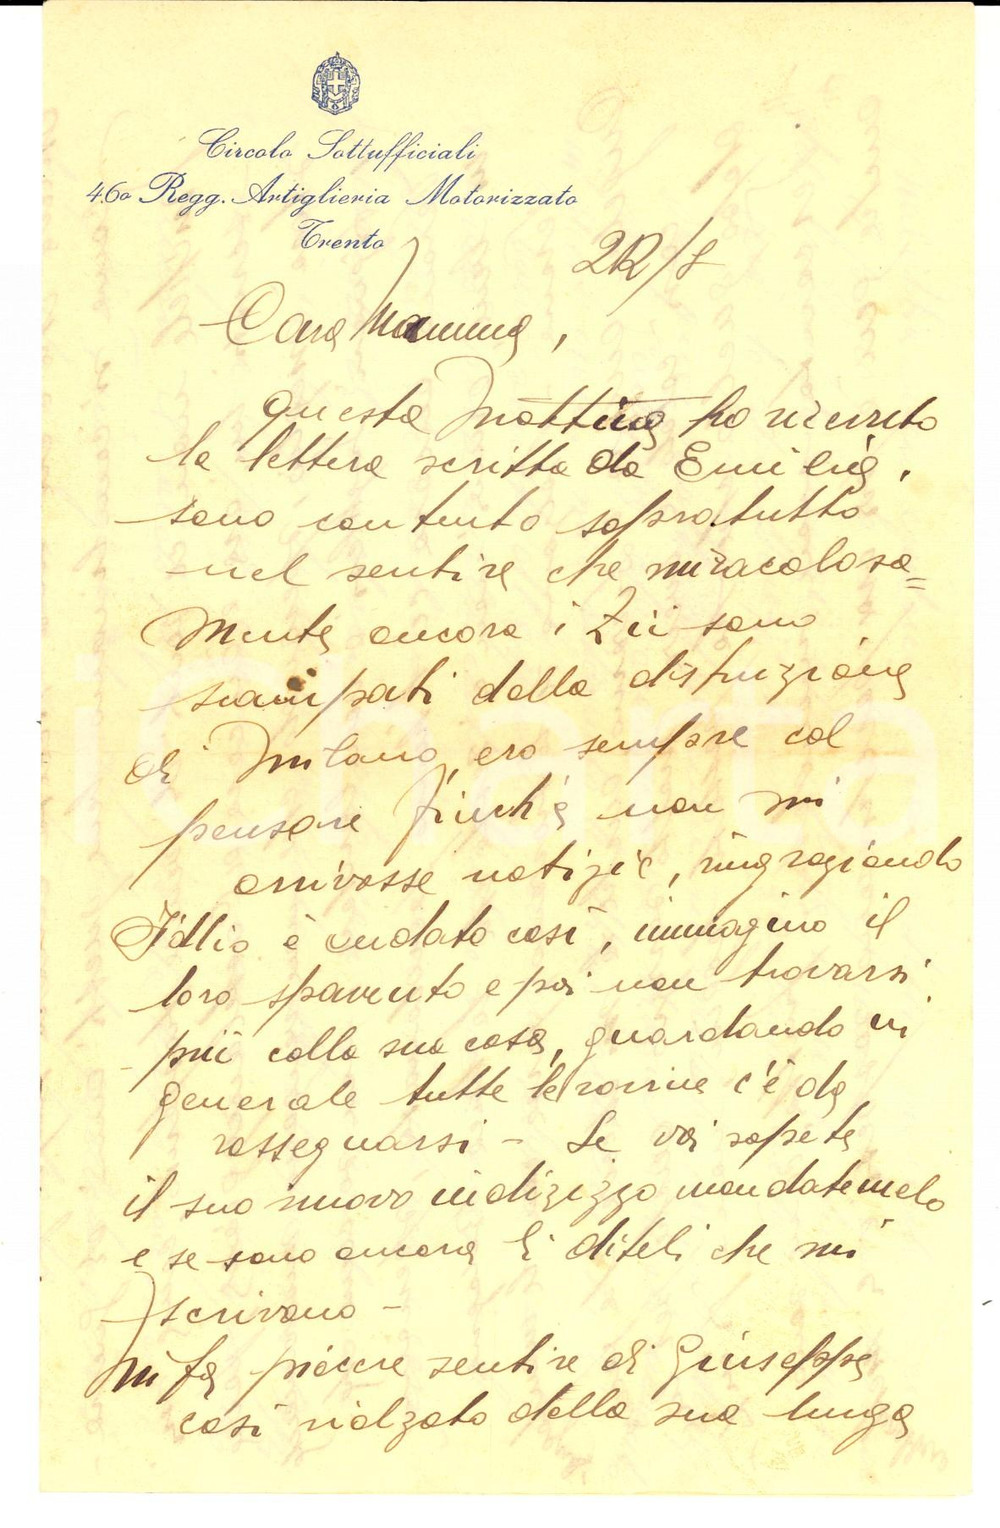 Circolo Sottufficiali
46º Regg. Artiglieria Motorizzato
Trento
22/8
Cara Mamma,
questa mattina ho ricevuto
la lettera scritta da Emilia,
sono contento sopratutto
nel sentire che miracolosa=
mente ancora i Zii sono
scampati dalla distruzione
di Milano, ero sempre col
pensare finchè non mi
arrivasse notizie, ringraziando
Iddio è andato così, immagino il
loro spavento e poi non trovarsi
più colla sua casa, guardando in
generale tutte le rovine c'è da
rassegnarsi - Se voi sapete
il suo nuovo indizizzo mandatemelo
e se sono ancora lì diteli che mi
scrivano -
Mi fa piacere sentire di Giuseppe
così rialzato dalla sua lunga